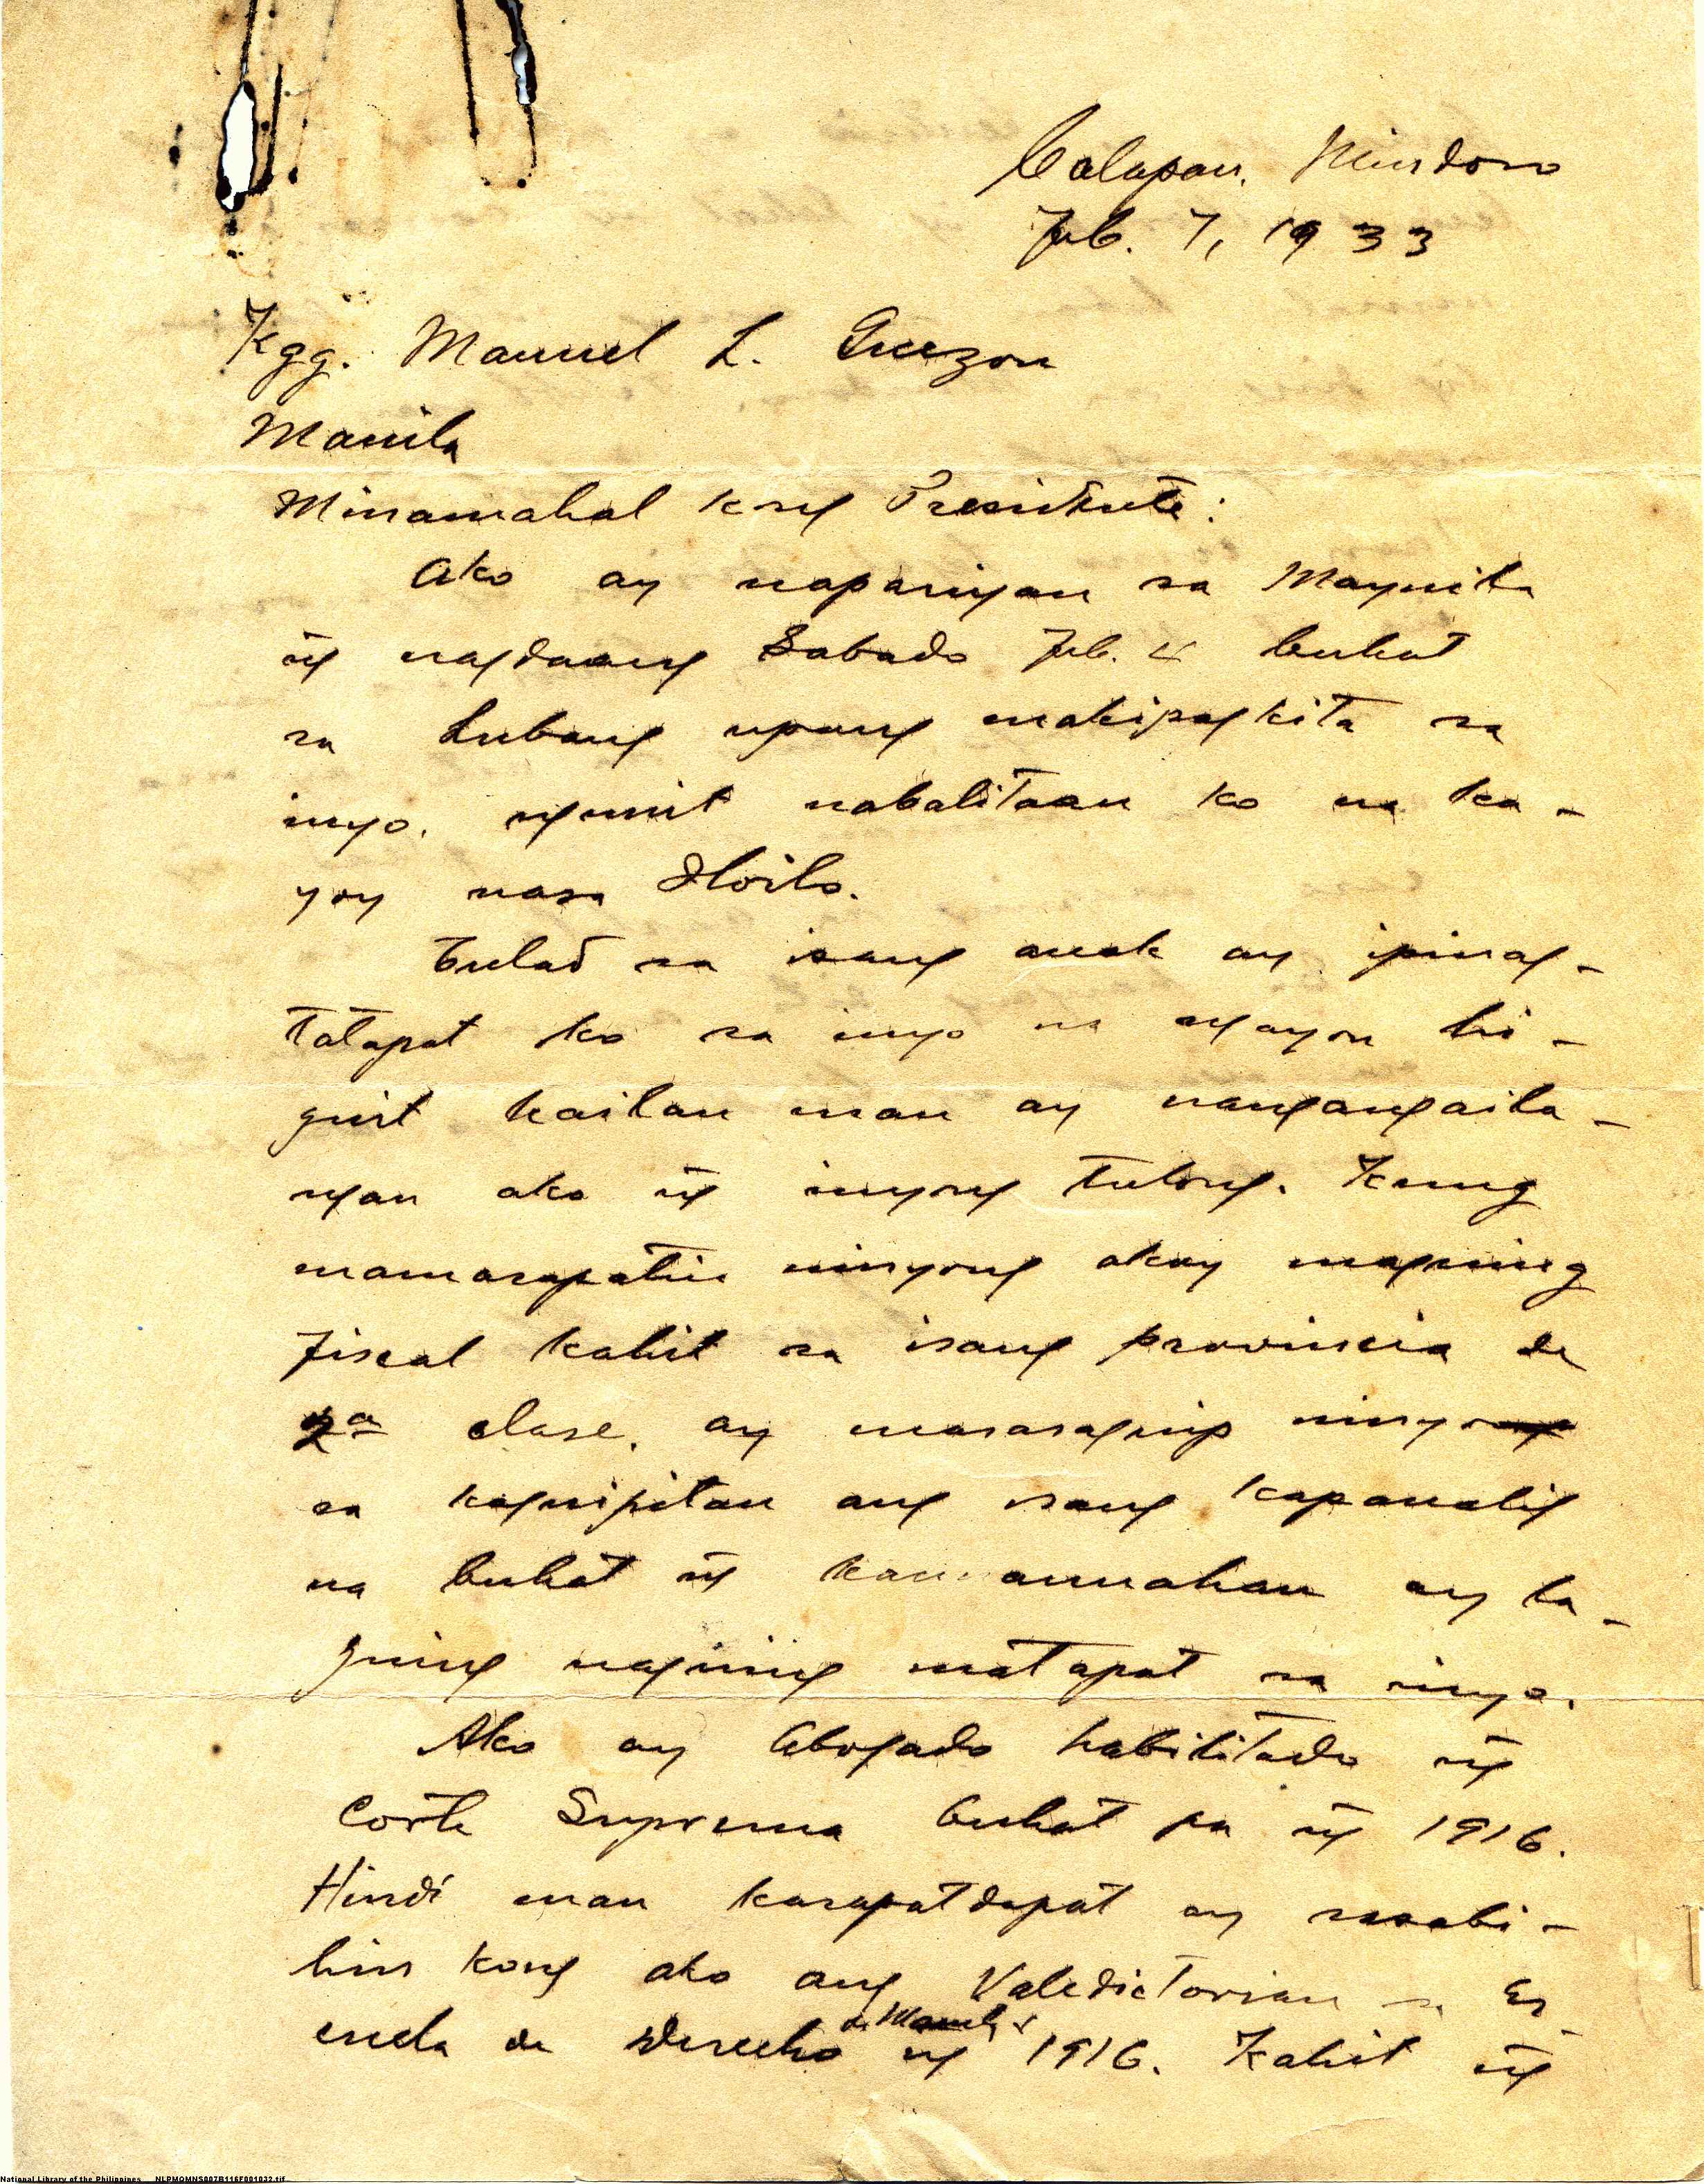 Calapan, Mindoro
Feb. 7, 1933
Kgg. Manuel L. Quezon
Manila
Minamahal kong Presidente:
Ako ay napariyan sa Maynila
ng̃ nagdaang Sabado Feb. 4 buhat
sa Lubang upang makipagkita sa
inyo, ngunit nabalitaan ko na ka-
yoy nasa Iloilo.
Tulad sa isang anak ay ipinag-
tatapat ko sa inyo na ngayon hi-
guit kailan man ay nangangaila-
ngan ako ng̃ inyong tulong. Kung
mamarapatin ninyong akoy maguing
fiscal kahit sa isang provincia de
2a clase, ay masasaguip ninyo
sa kaguipitan ang isang kapanalig
na buhat ng̃ kaunaunahan ay la-
guing naguing matapat sa inyo.
Ako ay Abogado habilitado ng̃
Corte Suprema buhat pa ng̃ 1916.
Hindi man karapatdapat ay masabi-
hin kong ako ang Valedictorian sa Es-
cuela de Derecho de Manila ng 1916. Kahit ng̃
National Library of the Philippines NLPMQMNS007B116F001032.tif